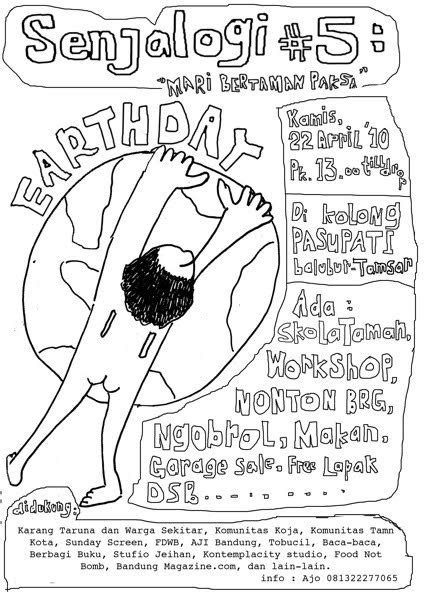 Senjalogi #5:
"MARI BERTAMAN PAKSA"
EARTHDAY
Kamis,
22 April '10
Pk. 13.00 tilldrop
Di kolong
PASUPATI
balubur-Tamsar
Ada:
SkolaTaman,
WORKSHOP,
NONTON BRG,
Ngobrol, Makan,
Garage Sale, Free Lapak
DSB...........
didukong:
Karang Taruna dan Warga Sekitar, Komunitas Koja, Komunitas Tamn
Kota, Sunday Screen, FDWB, AJI Bandung, Tobucil, Baca-baca,
Berbagi Buku, Stufio Jeihan, Kontemplacity studio, Food Not
Bomb, Bandung Magazine.com, dan lain-lain.
info : Ajo 081322277065